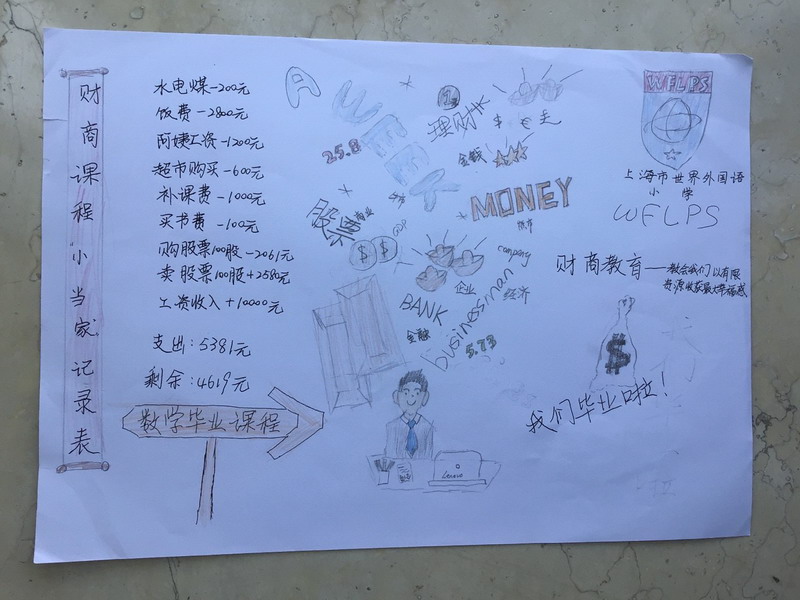 财商课程小当家记录表
水电煤-200元
饭费-2800元
阿姨工资-1200元
超市购买-600元
补课费-1000元
买书费-100元
购股票100股-2061元
卖股票100股+2580元
工资收入+10000元
支出:5381元
剩余:4619元
数学毕业课程
A
WEEK
25.8
理财
$ €
金钱
MONEY
股票
商业
GDP
$ $
company
企业
经济
BANK
金融
businessman
5.73
Lenovo
WFLPS
上海市世界外国语
小学
WFLPS
财商教育——教会我们以有限
资源收获最大幸福感
$
我们毕业啦!